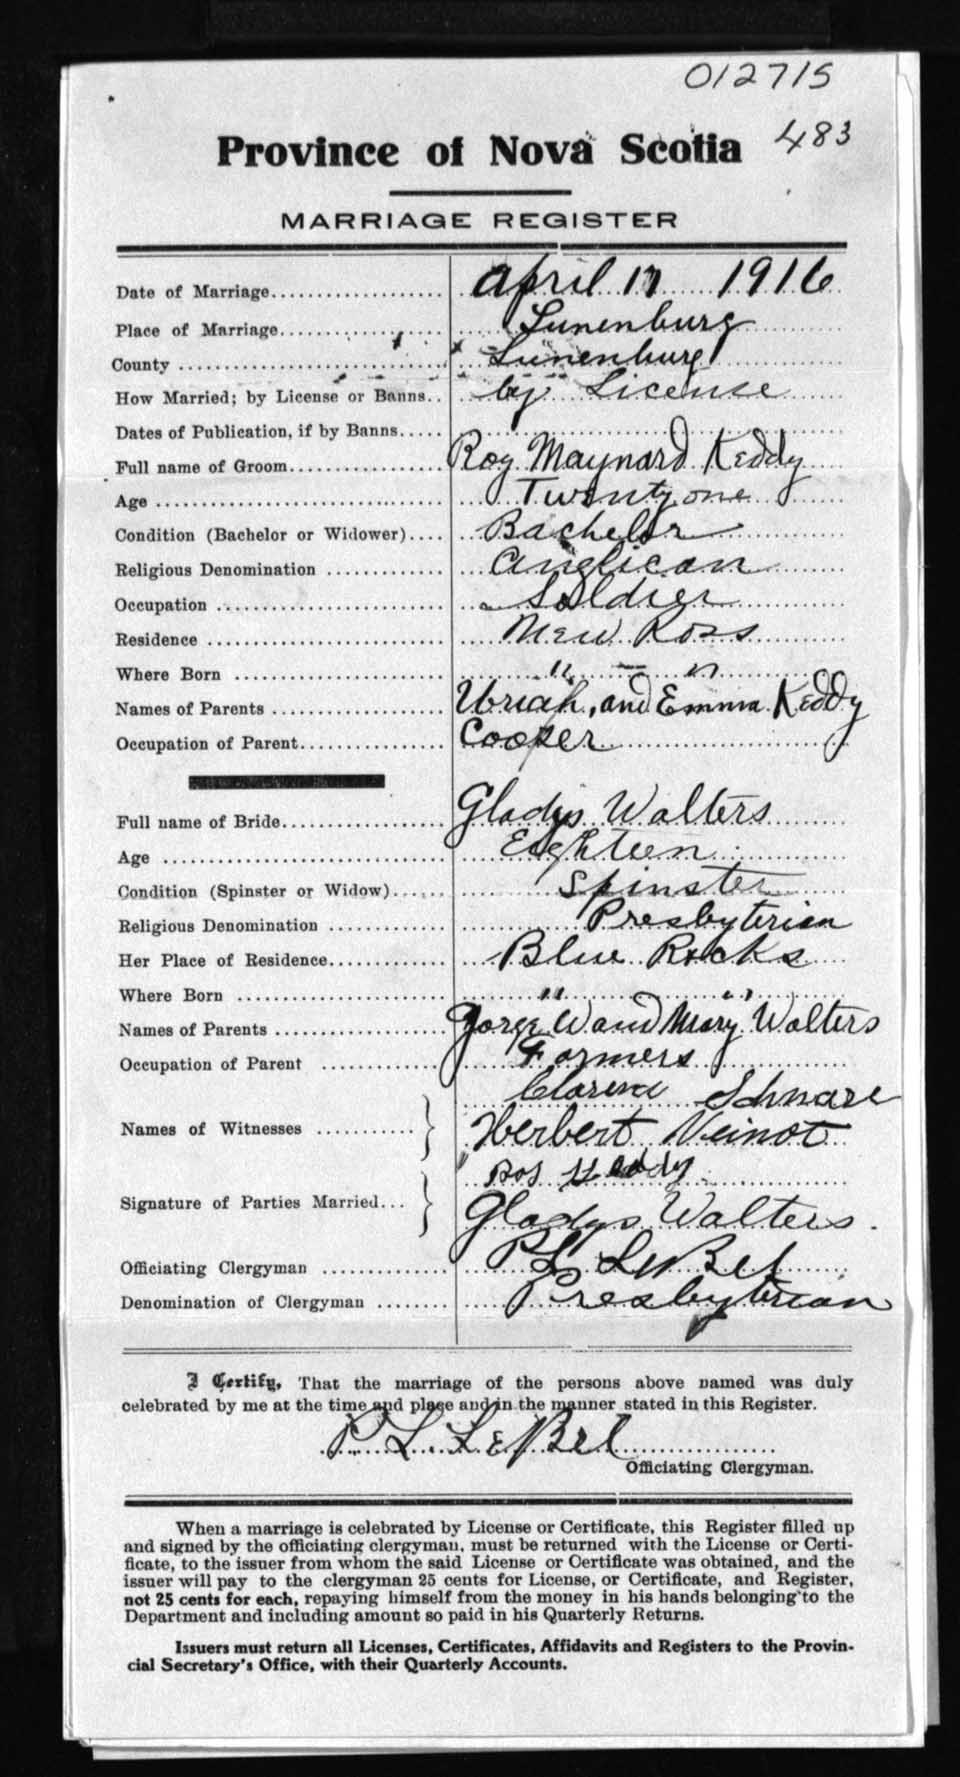 012715
483
Province of Nova Scotia
MARRIAGE REGISTER
Date of Marriage.................... April 17 1916
Place of Marriage................... Lunenburg
County ............................ Lunenburg
How Married; by License or Banns.. by License
Dates of Publication, if by Banns.....
Full name of Groom.................. Roy Maynard Keddy
Age ................................ Twenty one
Condition (Bachelor or Widower).... Bachelor
Religious Denomination ............. Anglican
Occupation ......................... Soldier
Residence .......................... New Ross
Where Born ........................ " — "
Names of Parents ................... Uriah, and Emma Keddy
Occupation of Parent................ Cooper
Full name of Bride.................. Gladys Walters
Age ................................ Eighteen
Condition (Spinster or Widow)...... Spinster
Religious Denomination ............. Presbyterian
Her Place of Residence............. Blue Rocks
Where Born ........................ " "
Names of Parents ................... George W and Mary Walters
Occupation of Parent .............. Farmers
Schnare
Names of Witnesses ........... } Herbert Veinot
Keddy
Signature of Parties Married... } Gladys Walters.
Officiating Clergyman .............. P L LeBel
Denomination of Clergyman ........ Presbyterian
I Certify, That the marriage of the persons above named was duly
celebrated by me at the time and place and in the manner stated in this Register.
P. L. LeBel
Officiating Clergyman.
When a marriage is celebrated by License or Certificate, this Register filled up
and signed by the officiating clergyman, must be returned with the License or Certi-
ficate, to the issuer from whom the said License or Certificate was obtained, and the
issuer will pay to the clergyman 25 cents for License, or Certificate, and Register,
not 25 cents for each, repaying himself from the money in his hands belonging to the
Department and including amount so paid in his Quarterly Returns.
Issuers must return all Licenses, Certificates, Affidavits and Registers to the Provin-
cial Secretary's Office, with their Quarterly Accounts.